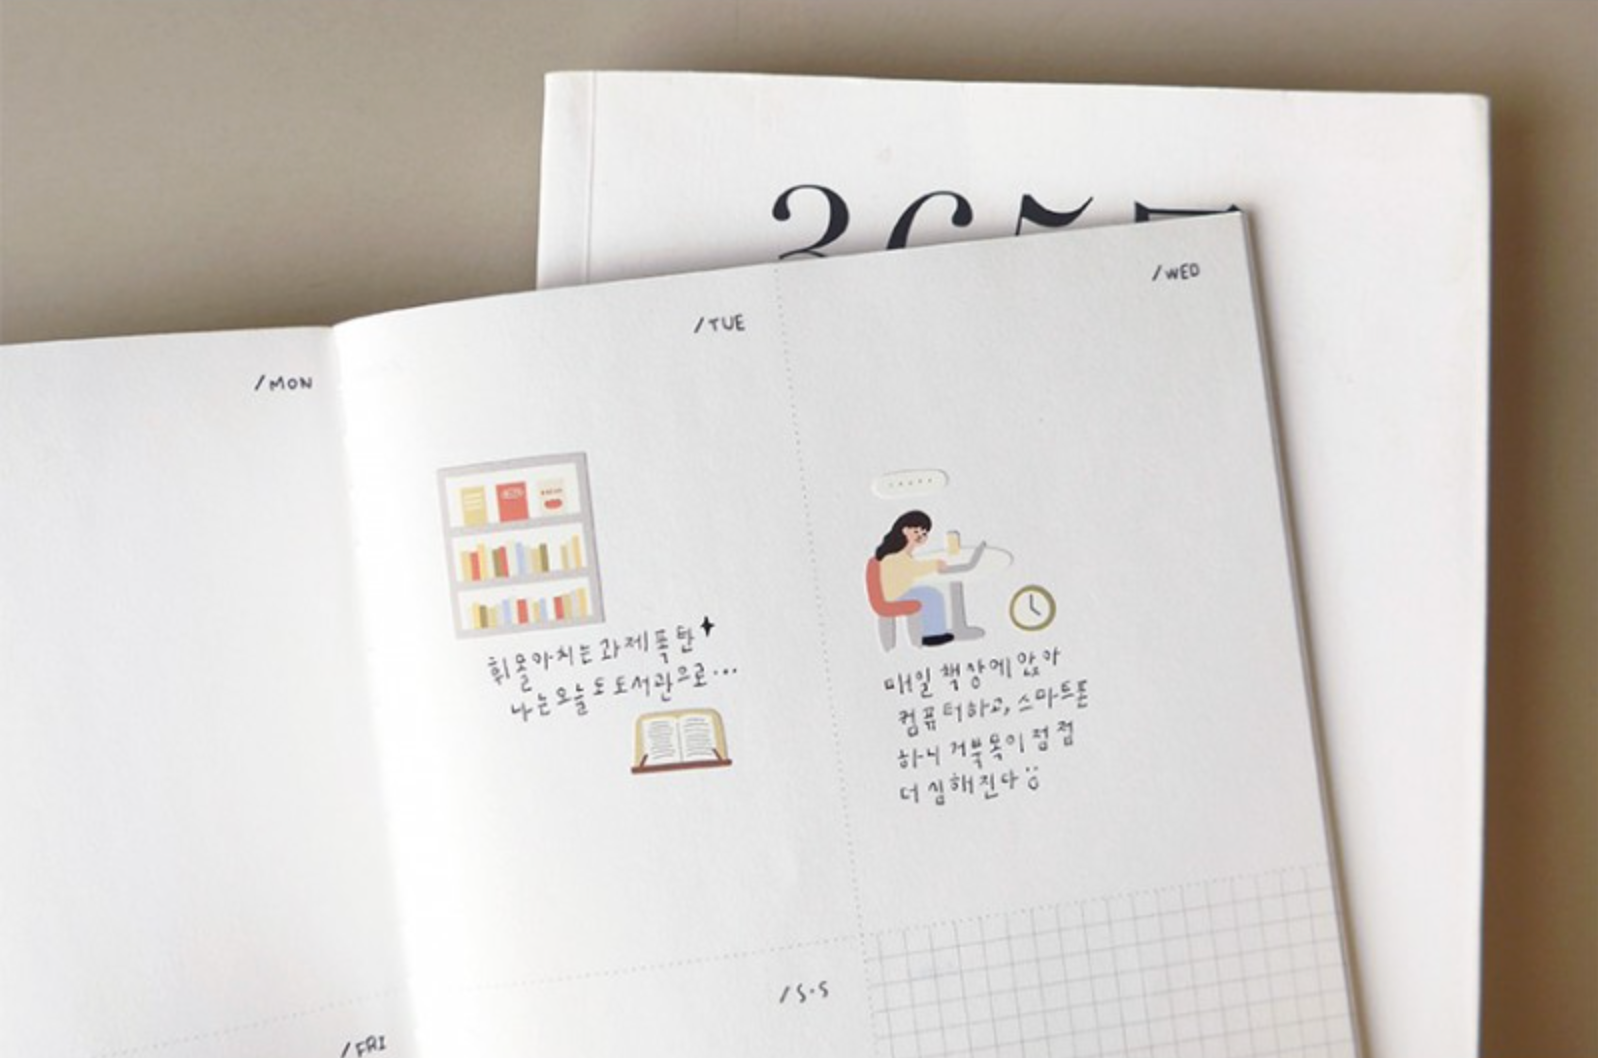 /MON
/TUE
휘몰아치는 과제폭탄
나는 오늘도 도서관으로...
/WED
매일 책상에 앉아
컴퓨터하고, 스마트폰
하니 거북목이 점점
더 심해진다
/FRI
/S·S